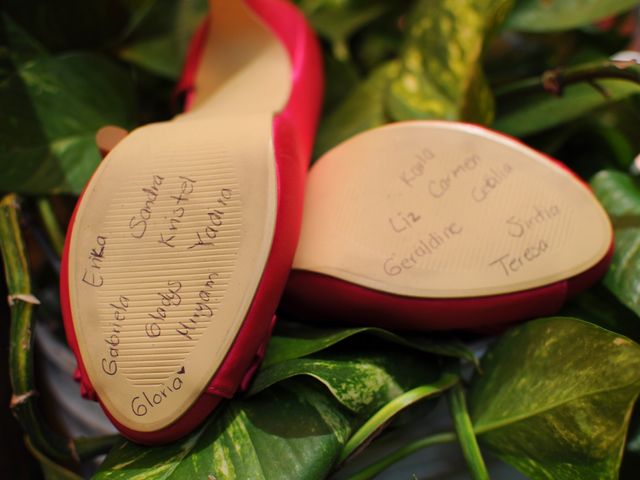 Sandra
Kristel
Yadira
Erika
Gladys
Miryam
Gabriela
Gloria♥
Karla
Carmen
Cecilia
Liz
Geraldine
Sintia
Teresa